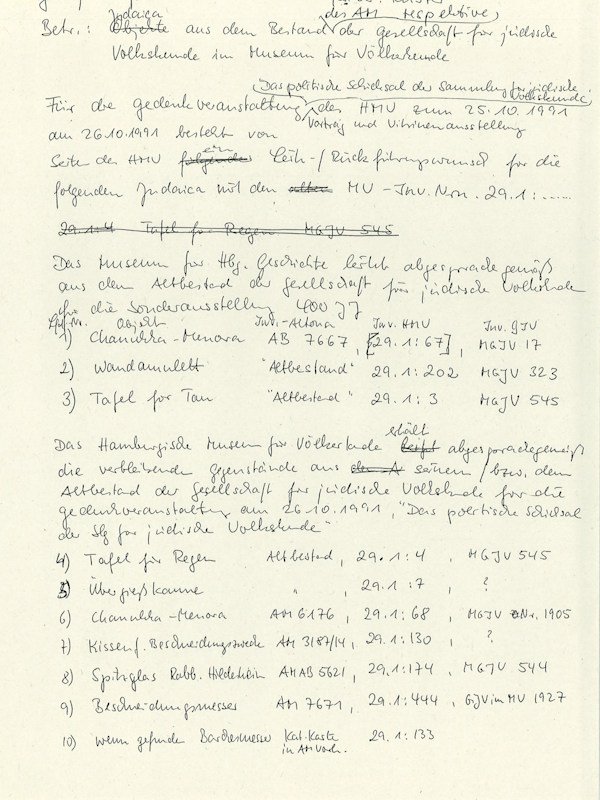 des AM respektive,
Judaica
Betr.: Objekte aus dem Bestand der Gesellschaft für jüdische
Volkskunde im Museum für Völkerkunde
Das politische Schicksal der Sammlung für jüdische Volkskunde
Für die Gedenkveranstaltung des HMV zum 25.10.1991
Vortrag und Vitrinenausstellung
am 26.10.1991 besteht von
ein
Seiten des HMV folgender Leih-/Rückführungswunsch für die
folgenden Judaica mit den MV-Inv.Nrn. 29.1:......
29.1:4 Tafel für Regen MGJV 545
Das Museum für Hbg. Geschichte leiht absprachegemäß
aus dem Altbestand der Gesellschaft für jüdische Volkskunde
für die Sonderausstellung 400 JJ
Lfd.Nr. Objekt Inv.-Altona Inv. HMV Inv. GJV
1) Chanukka-Menora AB 7667, [29.1:67], MGJV 17
2) Wandamulett "Altbestand" 29.1:202 MGJV 323
3) Tafel für Tau "Altbestand" 29.1:3 MGJV 545
erhält
Das Hamburgische Museum für Völkerkunde leiht absprachegemäß
die verbleibenden Gegenstände aus dem A seinem / bzw. dem
Altbestand der Gesellschaft für jüdische Volkskunde für die
Gedenkveranstaltung am 26.10.1991, "Das politische Schicksal
der Slg für jüdische Volkskunde"
4) Tafel für Regen Altbestand, 29.1:4, MGJV 545
5) Übergießkanne " , 29.1:7 , ?
6) Chanukka-Menora AM 6176, 29.1:68, MGJV Nr. 1905
7) Kissen f. Beschneidungszwecke AM 3187/14, 29.1:130 , ?
8) Spitzglas Rabb. Hildesheim AHAB 5621, 29.1:174, MGJV 544
9) Beschneidungsmesser AM 7671, 29.1:444, GJV im MV 1927
10) wenn gefunden Barchesmesser Kat.Karte 29.1:133
in AM vorh.